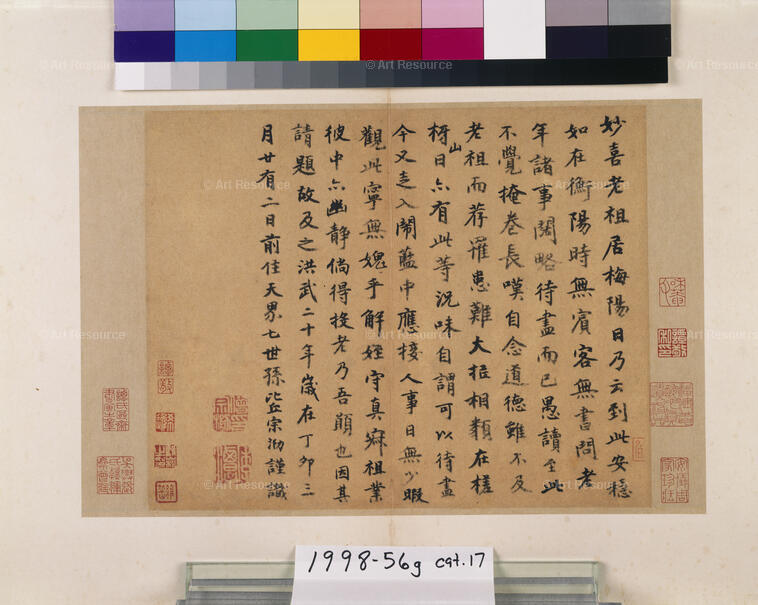 © Art Resource © Art Resource © Art Resource
妙喜老祖居梅陽日乃云到此安穩
如在衡陽時無賓客無書問老
年諸事闊略待盡而已愚讀至此
不覺掩卷長嘆自念道德雖不及
老祖而荐罹患難大槩相類在槎
枒山日亦有此等況味自謂可以待盡
今又走入鬧藍中應接人事日無少暇
觀此寧無媿乎解姪守真寂祖業
彼中亦幽静倘得投老乃吾願也因其
請題故及之洪武二十年歲在丁卯三
月廿有二日前住天界七世孫比丘宗泐謹識
1998-56g cat.17